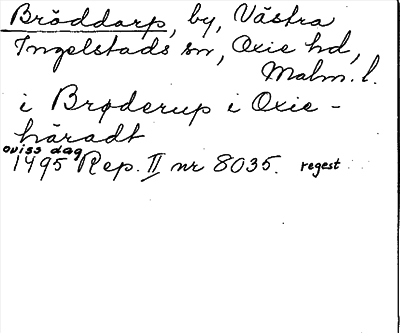 Bröddarp, by, Västra
Ingelstads sn, Oxie hd,
Malm. l.
i Brøderup i Oxie-
häradt
oviss dag
1495 Rep. II nr 8035. regest